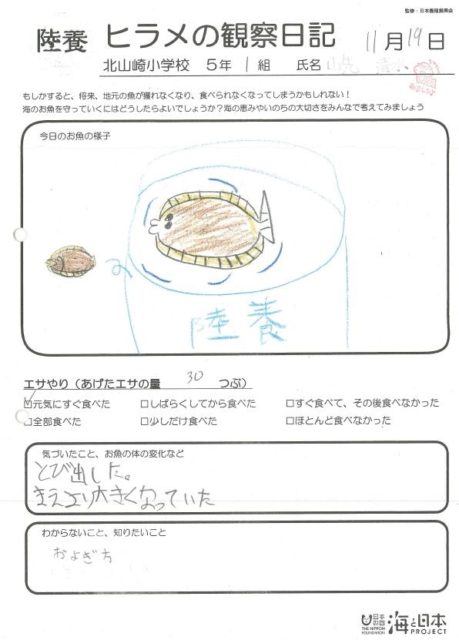 監修・日本養殖振興会
陸養 ヒラメの観察日記 11月19日
北山崎小学校 5年 1組 氏名
もしかすると、将来、地元の魚が獲れなくなり、食べられなくなってしまうかもしれない!
海のお魚を守っていくにはどうしたらよいでしょうか?海の恵みやいのちの大切さをみんなで考えてみましょう
今日のお魚の様子
陸養
エサやり(あげたエサの量 30 つぶ)
☑元気にすぐ食べた □しばらくしてから食べた □すぐ食べて、その後食べなかった
□全部食べた □少しだけ食べた □ほとんど食べなかった
気づいたこと、お魚の体の変化など
とび出した。
まえより大きくなっていた
わからないこと、知りたいこと
およぎ方
日本財団 THE NIPPON FOUNDATION 海と日本 PROJECT